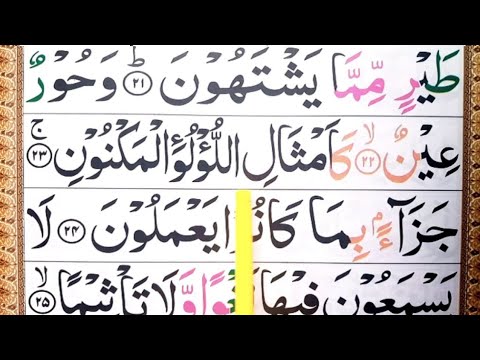 طَيْرٍ مِّمَّا يَشْتَهُوْنَ ؕ‏ ﴿۲۱﴾ وَحُوْرٌ
عِيْنٌ ۙ‏ ﴿۲۲﴾ كَاَمْثَالِ اللُّؤْلُوٴِالْمَكْنُوْنِ ۚ‏ ﴿۲۳﴾
جَزَآءًۢ بِمَا كَانُوْا يَعْمَلُوْنَ‏ ﴿۲۴﴾ لَا
يَسْمَعُوْنَ فِيْهَا لَغْوًا وَّلَا تَاْثِيْمًا ۙ‏ ﴿۲۵﴾